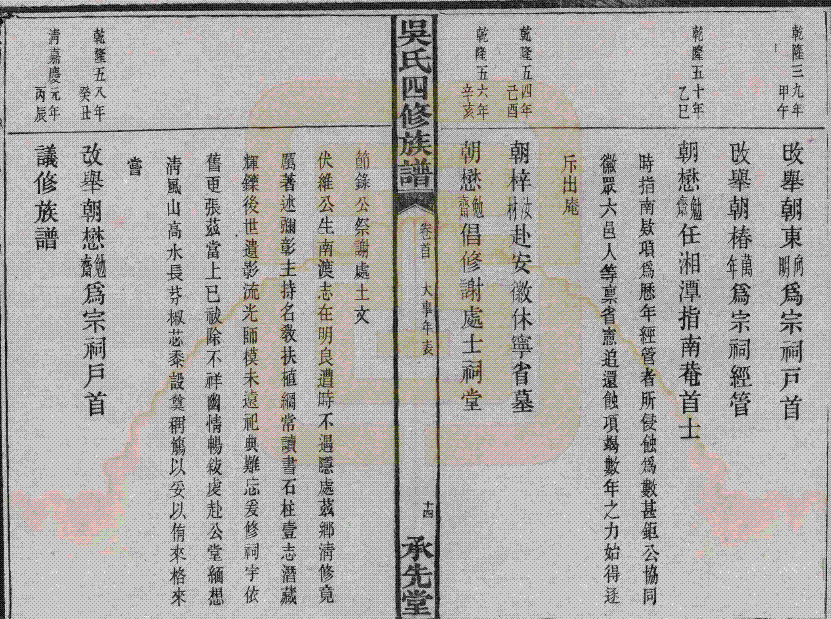 乾隆三九年甲午
改舉朝東向明爲宗祠戶首
改舉朝椿萬年爲宗祠經管
乾隆五十年乙巳
朝懋勉齋任湘潭指南菴首士
時指南欵項爲歷年經管者所侵蝕爲數甚鉅公協同
徽眾六邑人等稟省憲追還蝕項竭數年之力始得逐
斥出庵
乾隆五四年己酉
朝梓汝材赴安徽休寧省墓
乾隆五六年辛亥
朝懋勉齋倡修謝處士祠堂
吳氏四修族譜
卷首 大事年表
十四
承先堂
節錄公祭謝處士文
伏維公生南渡志在明良遭時不遇隱處茲鄉清修竟
厲著述彌彰主持名教扶植綱常讀書石柱壹志潛藏
輝鑠後世遺影流光師模未遠祀典難忘爰修祠宇依
舊更張茲當上巳祓除不祥幽情暢敘虔赴公堂緬想
清風山高水長芬椒苾黍設奠稱觴以妥以侑來格來
嘗
乾隆五八年癸丑
改舉朝懋勉齋爲宗祠戶首
清嘉慶元年丙辰
議修族譜